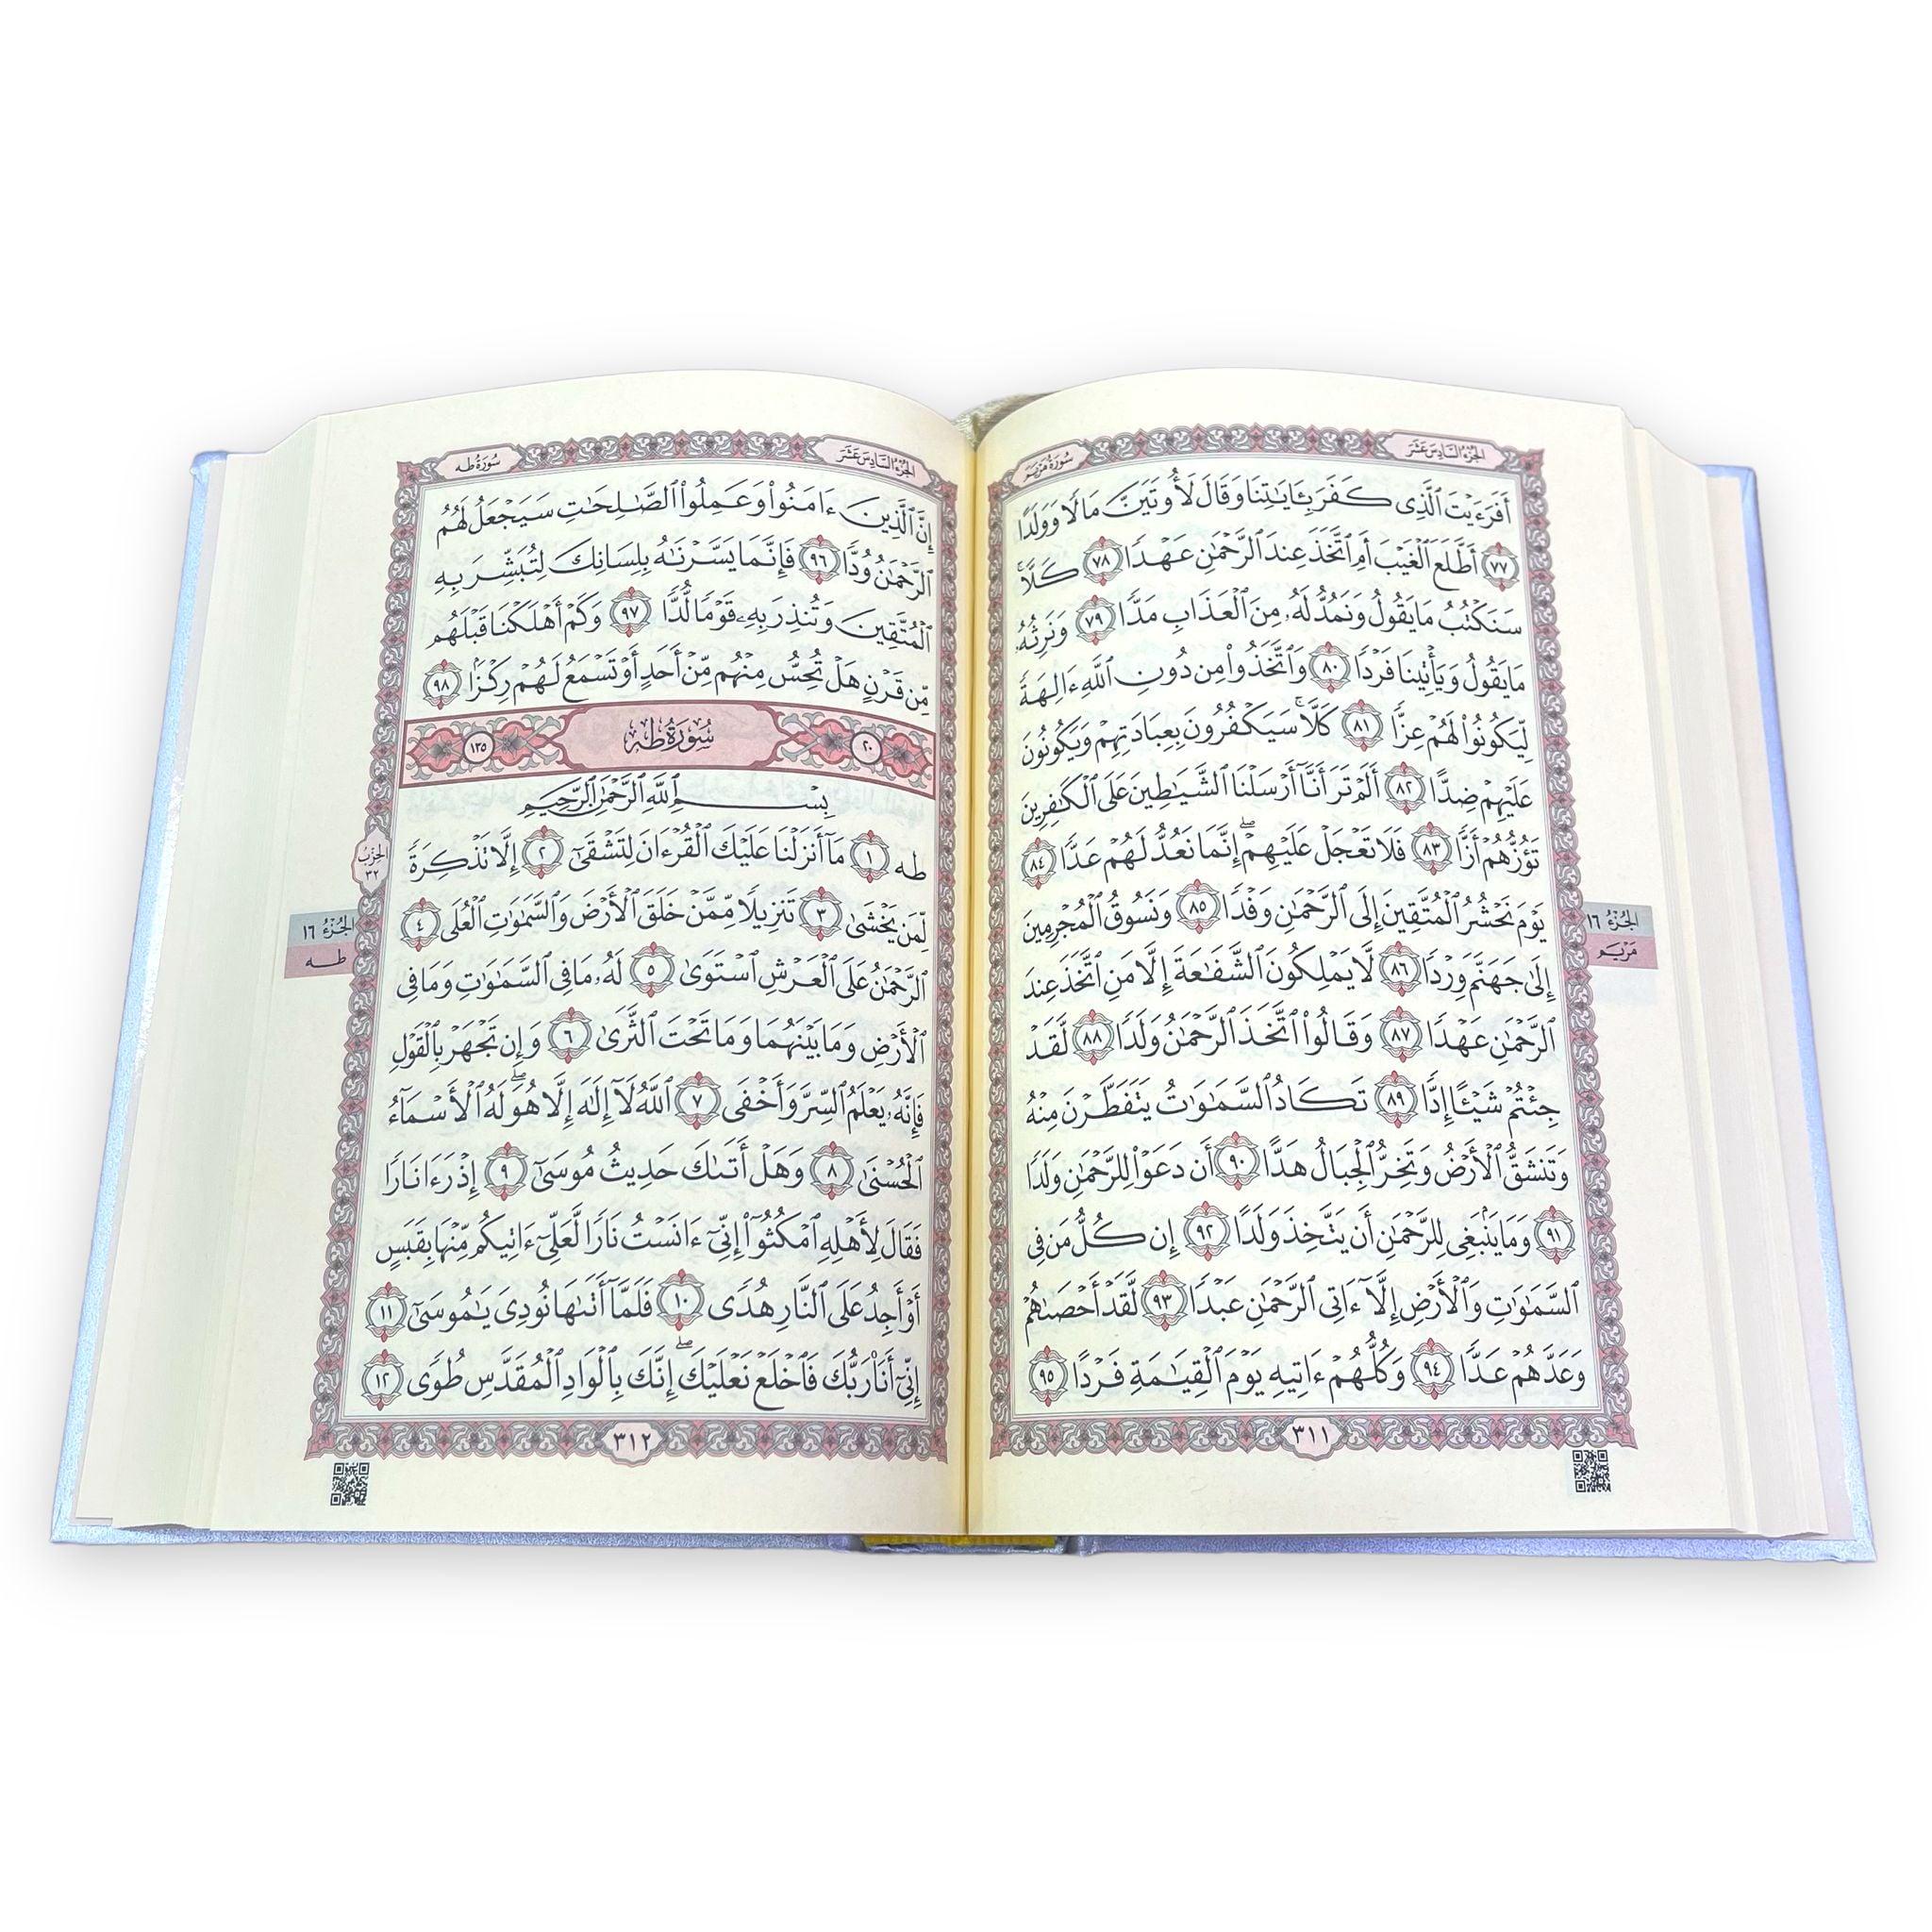 الجزء السادس عشر
سورة مريم
أَفَرَءَيْتَ ٱلَّذِى كَفَرَ بِـَٔايَٰتِنَا وَقَالَ لَأُوتَيَنَّ مَالًا وَوَلَدًا
٧٧ أَطَّلَعَ ٱلْغَيْبَ أَمِ ٱتَّخَذَ عِندَ ٱلرَّحْمَٰنِ عَهْدًا ٧٨ كَلَّا ۚ
سَنَكْتُبُ مَا يَقُولُ وَنَمُدُّ لَهُۥ مِنَ ٱلْعَذَابِ مَدًّا ٧٩ وَنَرِثُهُۥ
مَا يَقُولُ وَيَأْتِينَا فَرْدًا ٨٠ وَٱتَّخَذُوا۟ مِن دُونِ ٱللَّهِ ءَالِهَةً
لِّيَكُونُوا۟ لَهُمْ عِزًّا ٨١ كَلَّا ۚ سَيَكْفُرُونَ بِعِبَادَتِهِمْ وَيَكُونُونَ
عَلَيْهِمْ ضِدًّا ٨٢ أَلَمْ تَرَ أَنَّآ أَرْسَلْنَا ٱلشَّيَٰطِينَ عَلَى ٱلْكَٰفِرِينَ
تَؤُزُّهُمْ أَزًّا ٨٣ فَلَا تَعْجَلْ عَلَيْهِمْ ۖ إِنَّمَا نَعُدُّ لَهُمْ عَدًّا ٨٤
يَوْمَ نَحْشُرُ ٱلْمُتَّقِينَ إِلَى ٱلرَّحْمَٰنِ وَفْدًا ٨٥ وَنَسُوقُ ٱلْمُجْرِمِينَ
إِلَىٰ جَهَنَّمَ وِرْدًا ٨٦ لَّا يَمْلِكُونَ ٱلشَّفَٰعَةَ إِلَّا مَنِ ٱتَّخَذَ عِندَ
ٱلرَّحْمَٰنِ عَهْدًا ٨٧ وَقَالُوا۟ ٱتَّخَذَ ٱلرَّحْمَٰنُ وَلَدًا ٨٨ لَّقَدْ
جِئْتُمْ شَيْـًٔا إِدًّا ٨٩ تَكَادُ ٱلسَّمَٰوَٰتُ يَتَفَطَّرْنَ مِنْهُ
وَتَنشَقُّ ٱلْأَرْضُ وَتَخِرُّ ٱلْجِبَالُ هَدًّا ٩٠ أَن دَعَوْا۟ لِلرَّحْمَٰنِ وَلَدًا
٩١ وَمَا يَنۢبَغِى لِلرَّحْمَٰنِ أَن يَتَّخِذَ وَلَدًا ٩٢ إِن كُلُّ مَن فِى
ٱلسَّمَٰوَٰتِ وَٱلْأَرْضِ إِلَّآ ءَاتِى ٱلرَّحْمَٰنِ عَبْدًا ٩٣ لَّقَدْ أَحْصَىٰهُمْ
وَعَدَّهُمْ عَدًّا ٩٤ وَكُلُّهُمْ ءَاتِيهِ يَوْمَ ٱلْقِيَٰمَةِ فَرْدًا ٩٥
٣١١
الجزء ١٦
مريم
الجزء السادس عشر
سورة طه
إِنَّ ٱلَّذِينَ ءَامَنُوا۟ وَعَمِلُوا۟ ٱلصَّٰلِحَٰتِ سَيَجْعَلُ لَهُمُ
ٱلرَّحْمَٰنُ وُدًّا ٩٦ فَإِنَّمَا يَسَّرْنَٰهُ بِلِسَانِكَ لِتُبَشِّرَ بِهِ
ٱلْمُتَّقِينَ وَتُنذِرَ بِهِۦ قَوْمًا لُّدًّا ٩٧ وَكَمْ أَهْلَكْنَا قَبْلَهُم
مِّن قَرْنٍ هَلْ تُحِسُّ مِنْهُم مِّنْ أَحَدٍ أَوْ تَسْمَعُ لَهُمْ رِكْزًۢا ٩٨
٢٠ سُورَةُ طه ١٣٥
بِسْمِ ٱللَّهِ ٱلرَّحْمَٰنِ ٱلرَّحِيمِ
طه ١ مَآ أَنزَلْنَا عَلَيْكَ ٱلْقُرْءَانَ لِتَشْقَىٰٓ ٢ إِلَّا تَذْكِرَةً
لِّمَن يَخْشَىٰ ٣ تَنزِيلًا مِّمَّنْ خَلَقَ ٱلْأَرْضَ وَٱلسَّمَٰوَٰتِ ٱلْعُلَى ٤
ٱلرَّحْمَٰنُ عَلَى ٱلْعَرْشِ ٱسْتَوَىٰ ٥ لَهُۥ مَا فِى ٱلسَّمَٰوَٰتِ وَمَا فِى
ٱلْأَرْضِ وَمَا بَيْنَهُمَا وَمَا تَحْتَ ٱلثَّرَىٰ ٦ وَإِن تَجْهَرْ بِٱلْقَوْلِ
فَإِنَّهُۥ يَعْلَمُ ٱلسِّرَّ وَأَخْفَى ٧ ٱللَّهُ لَآ إِلَٰهَ إِلَّا هُوَ ۖ لَهُ ٱلْأَسْمَآءُ
ٱلْحُسْنَىٰ ٨ وَهَلْ أَتَىٰكَ حَدِيثُ مُوسَىٰٓ ٩ إِذْ رَءَا نَارًا
فَقَالَ لِأَهْلِهِ ٱمْكُثُوٓا۟ إِنِّىٓ ءَانَسْتُ نَارًا لَّعَلِّىٓ ءَاتِيكُم مِّنْهَا بِقَبَسٍ
أَوْ أَجِدُ عَلَى ٱلنَّارِ هُدًى ١٠ فَلَمَّآ أَتَىٰهَا نُودِىَ يَٰمُوسَىٰٓ ١١
إِنِّىٓ أَنَا۠ رَبُّكَ فَٱخْلَعْ نَعْلَيْكَ ۖ إِنَّكَ بِٱلْوَادِ ٱلْمُقَدَّسِ طُوًى ١٢
٣١٢
الحزب
٣٢
الجزء ١٦
طه